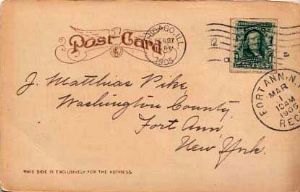 Post Card
CHICAGO, ILL.
1905
FORT ANN, N.Y.
MAR
10 AM
1905
REC'D
J. Matthias Pike,
Washington County,
Fort Ann,
New York.
THIS SIDE IS EXCLUSIVELY FOR THE ADDRESS.